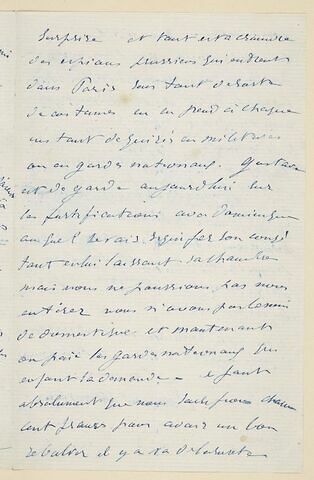 surprise et tout est à craindre
des espions prussiens qui entrent
dans Paris sous tant de sorte
de costumes on en prend à chaque
instant déguisés en militaires
ou en gardes nationaux. Gustave
est de garde aujourd'hui sur
les fortifications avec
auquel je vais signifier son congé
tout en lui laissant sa chambre
mais nous ne pouvions pas nous
nous n'avons pas besoin
de domestique et maintenant
on paie les gardes nationaux qui
en font la demande - il faut
absolument que nous chacun
cent francs pour avoir un bon
il y a va de la sureté